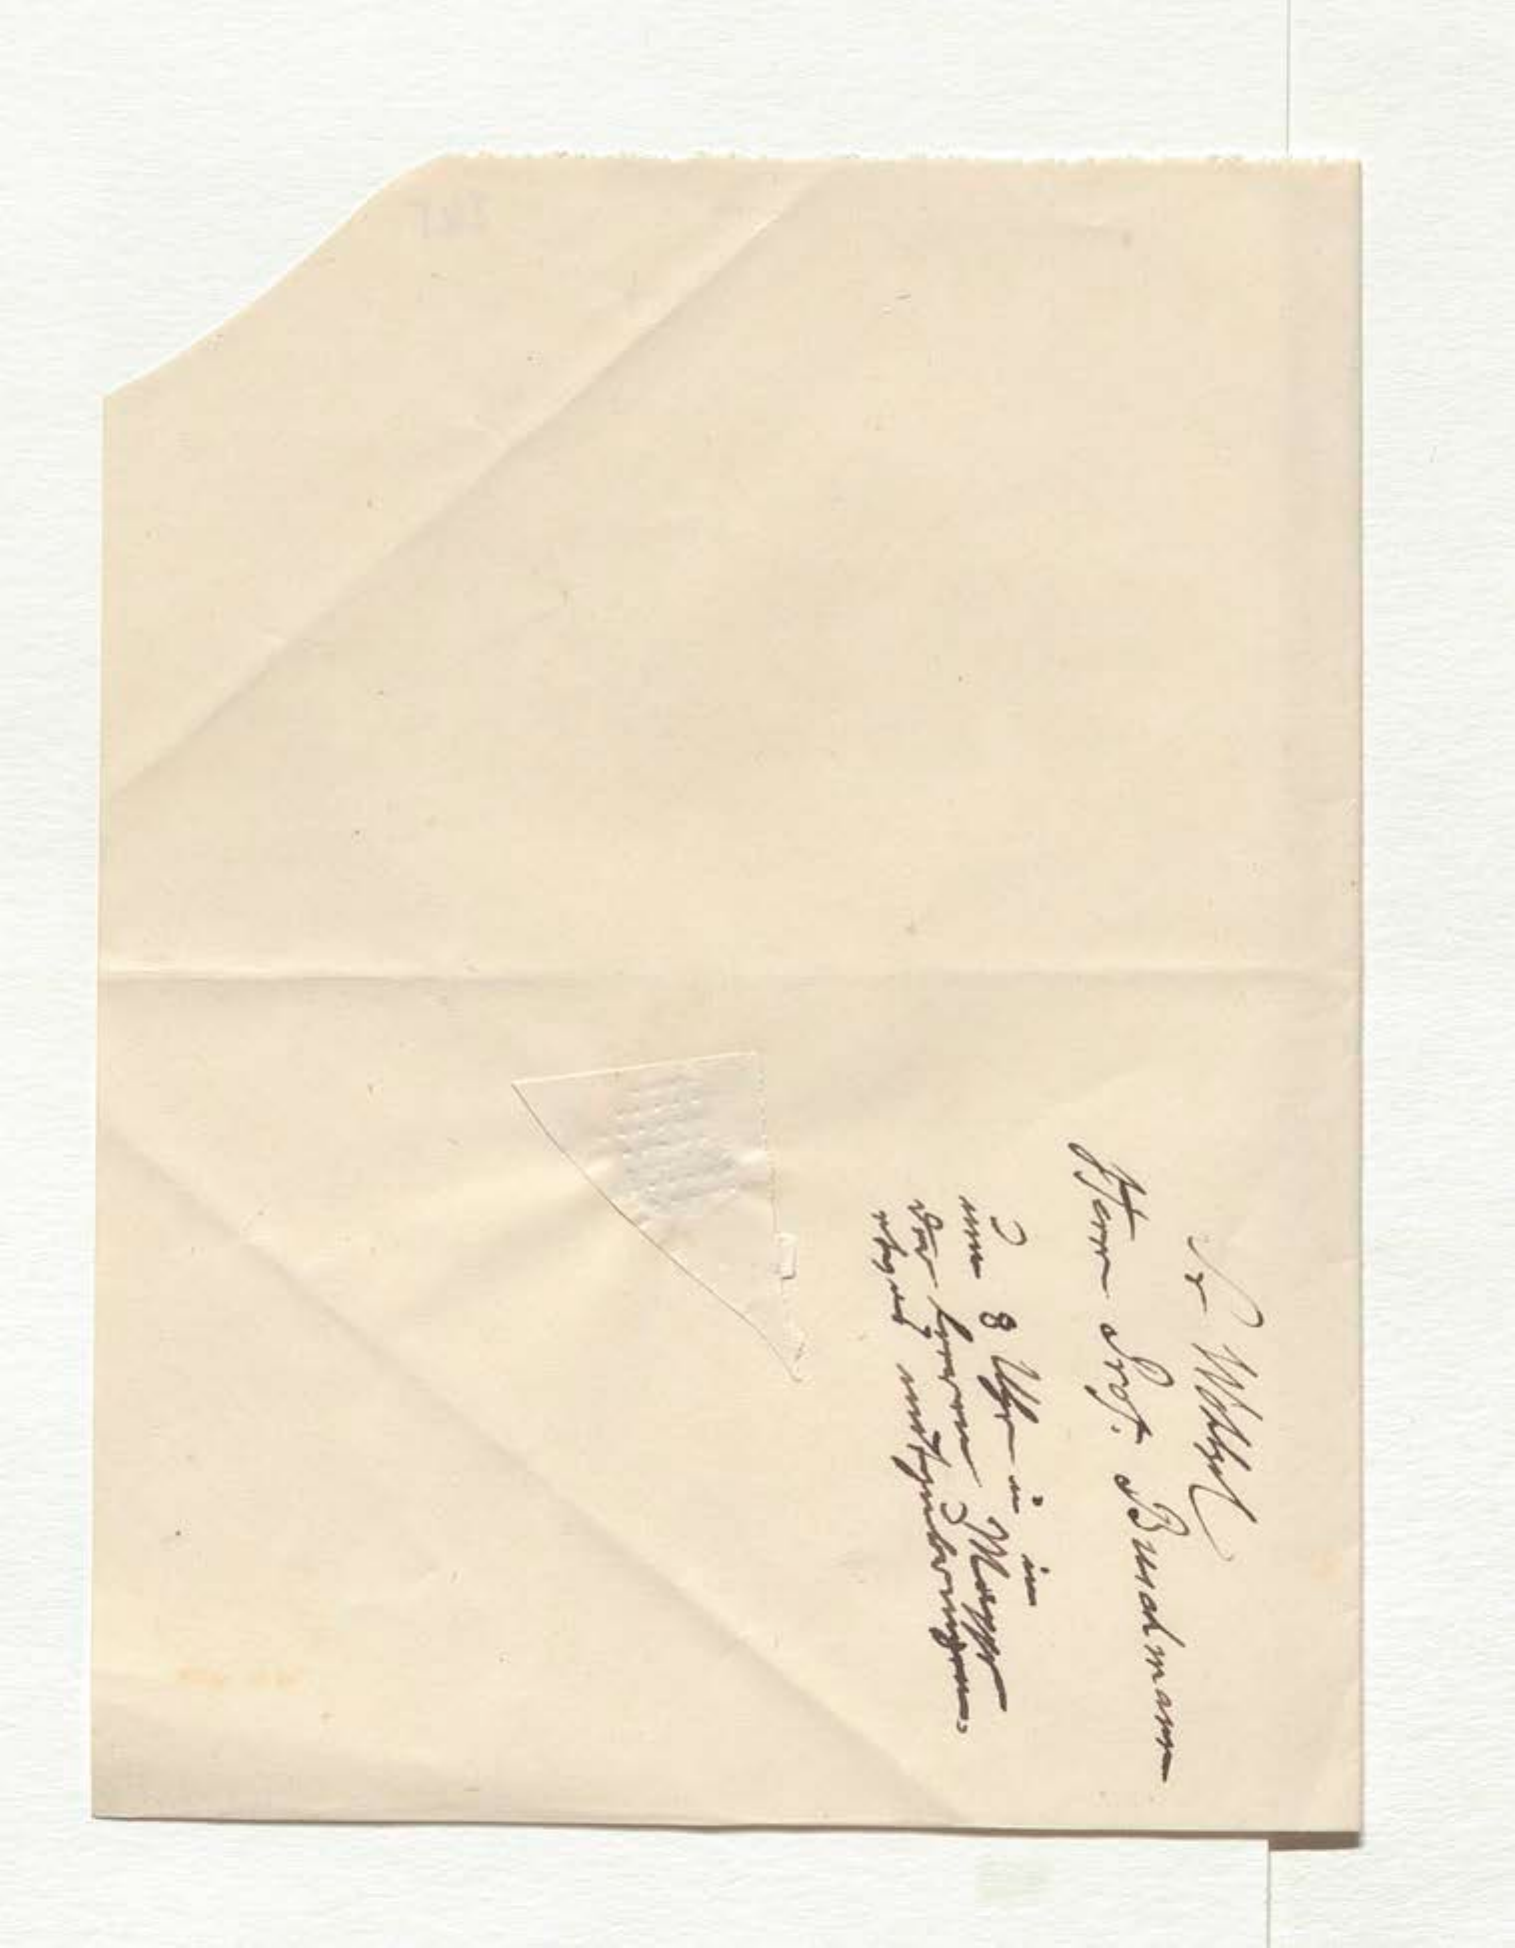 Sr Wohlg
Herrn Prof. Buschmann
um 8 Uhr u in
der braunen Mappe
mitzubringen.